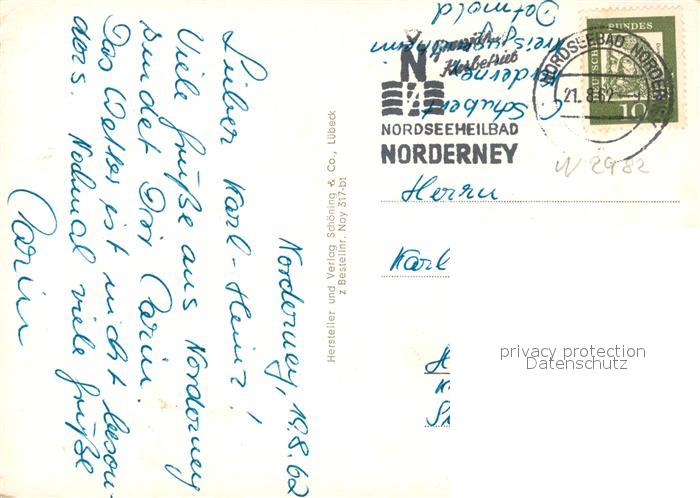 Norderney, 19.8.62
Lieber Karl-Heinz!
Viele Grüße aus Norderney
sendet Dir Carin.
Das Wetter ist nicht beson-
ders. Nochmal viele Grüße
Carin
Hersteller und Verlag Schöning & Co., Lübeck
z Bestellnr. Noy 317-bt
C. Schubert
Norderney
Kreisjugendheim
Detmold
N
NORDSEEHEILBAD
NORDERNEY
NORDSEEBAD NORDERNEY
21.8.62
BUNDES
10
W 2982
Herrn
Karl
privacy protection
Datenschutz